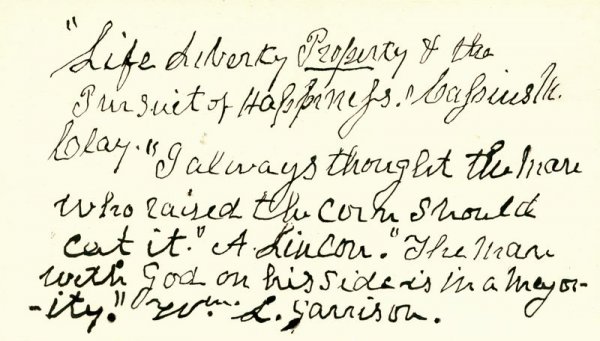 "Life Liberty Property & the
Pursuit of Happiness." Cassius M.
Clay. "I always thought the man
who raised the corn should
eat it." A. Lincon. "The man
with God on his side is in a major-
-ity." Wm. L. Garrison.